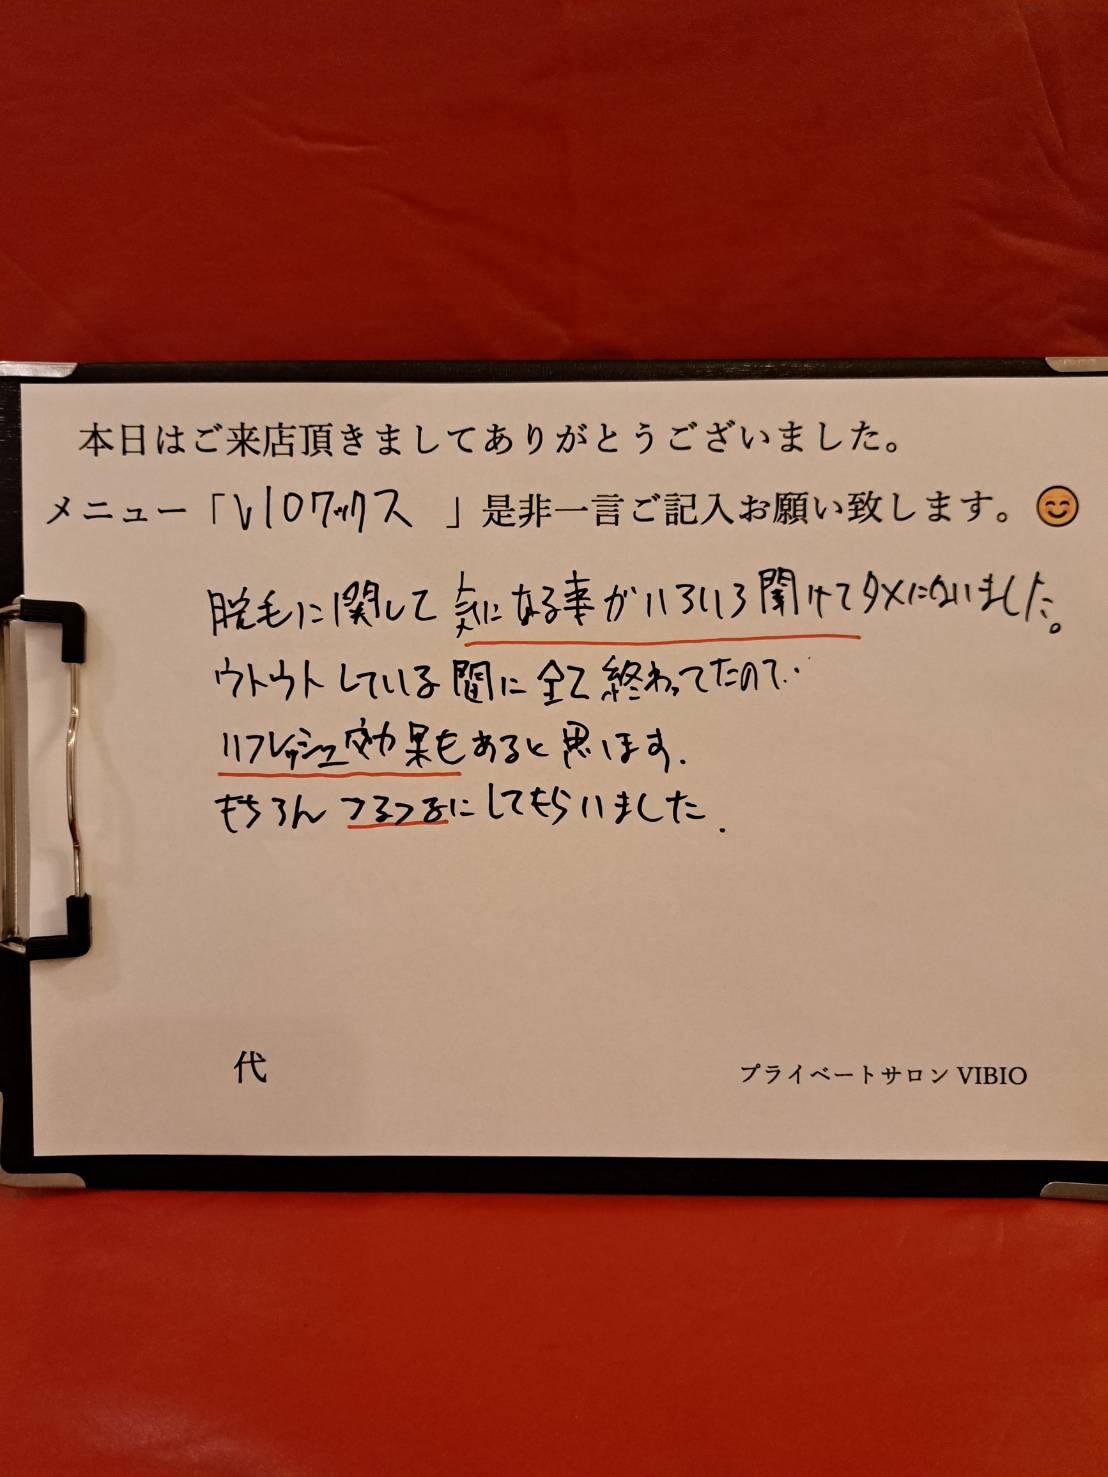 本日はご来店頂きましてありがとうございました。
メニュー「VIOワックス 」是非一言ご記入お願い致します。😊
脱毛に関して気になる事がいろいろ聞けてタメになりました。
ウトウトしている間に全て終わってたので..
リフレッシュ効果もあると思います.
もちろんつるつるにしてもらいました.
代
プライベートサロン VIBIO